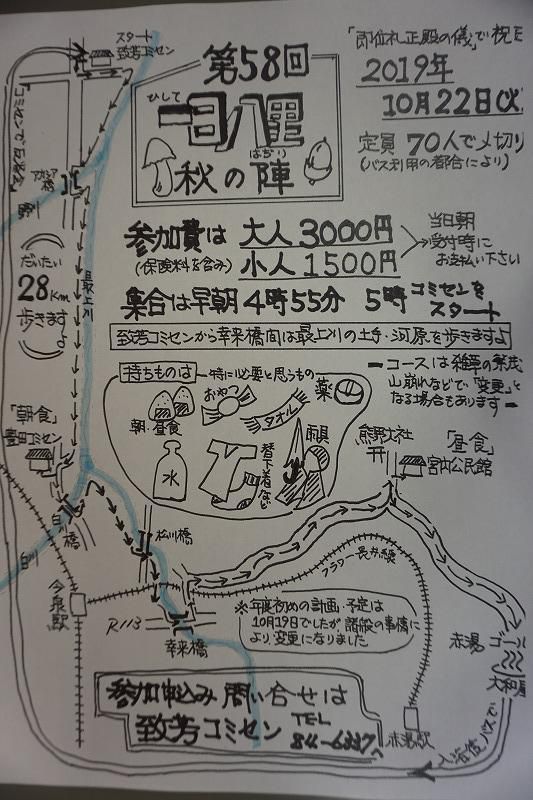 スタート
致芳コミセン
第58回
ひして
一日八里
はちり
秋の陣
「即位礼正殿の儀」で祝日
2019年
10月22日(火)
定員 70人で〆切り
(バス利用の都合により)
参加費は 大人 3000円
(保険料を含み) 小人 1500円
当日朝
受付時に
お支払い下さい
集合は早朝 4時55分 5時 コミセンを
スタート
致芳コミセンから幸来橋間は最上川の土手・河原を歩きますよ
コースは雑草の繁茂
山崩れなどで「変更」と
なる場合もあります
橋
野川
最上川
だいたい
28Km
歩きますよ
持ちものは
特に必要と思うもの
おやつ
タオル
薬
朝・昼食
水
替下着など
雨具
「朝食」
豊田コミセン
熊野大社
「昼食」
宮内公民館
白川
白川橋
松川橋
フラワー長井線
今泉駅
R113
幸来橋
※年度初めの計画・予定は
10月19日でしたが、諸般の事情に
より、変更になりました
赤湯 ゴール
大和屋
赤湯駅
入浴後バスで
参加申込み 問い合せは
致芳コミセン TEL
84-6227へ